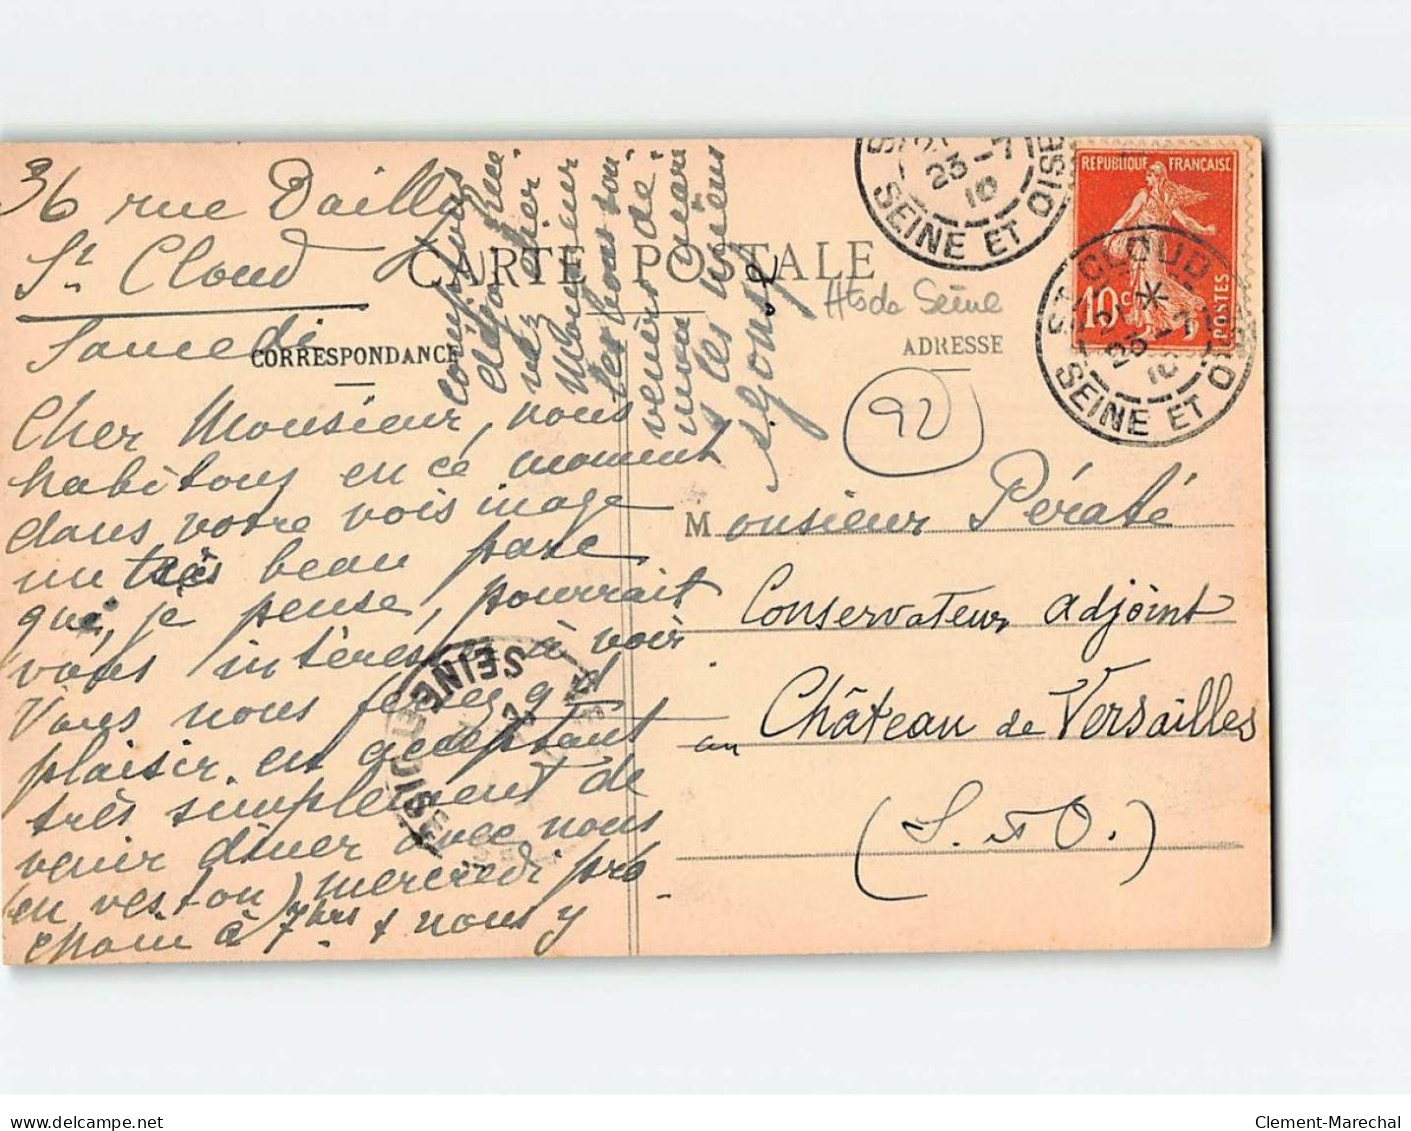 36 rue Dailly
St Cloud
Samedi
CARTE POSTALE
CORRESPONDANCE
ADRESSE
Hts de Seine
92
Cher Monsieur, nous
habitons en ce moment
dans votre voisinage
un très beau parc
que, je pense, pourrait
vous intéresser à voir
Vous nous feriez gd
plaisir en acceptant
très simplement de
venir dîner avec nous
(en veston) mercredi pro
chain à 7hrs & nous y
comptons
chez
Monsieur
venirs de
mon mari
& les miens
Monsieur Pératé
Conservateur adjoint
au Château de Versailles
(S. & O.)
REPUBLIQUE FRANÇAISE
10c
POSTES
23-7
10
SEINE ET OISE
ST CLOUD
23-7
10
SEINE ET OISE
SEINE ET OISE
delcampe.net
Clement-Marechal